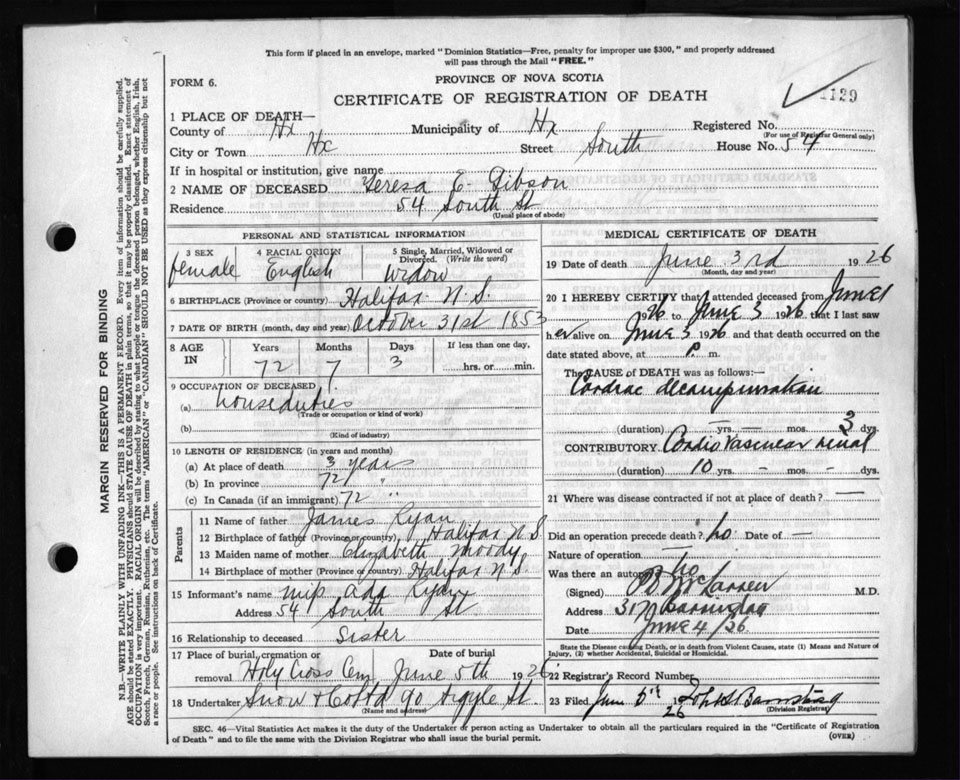 This form if placed in an envelope, marked "Dominion Statistics—Free, penalty for improper use $300," and properly addressed
will pass through the Mail "FREE."
PROVINCE OF NOVA SCOTIA
FORM 6.
CERTIFICATE OF REGISTRATION OF DEATH
1129
1 PLACE OF DEATH—
County of Hx Municipality of Hx Registered No.
(For use of Registrar General only)
City or Town Hx Street South House No. 54
If in hospital or institution, give name
2 NAME OF DECEASED Teresa E Gibson
Residence 54 South St
(Usual place of abode)
PERSONAL AND STATISTICAL INFORMATION
3 SEX 4 RACIAL ORIGIN 5 Single, Married, Widowed or
Divorced. (Write the word)
female English Widow
6 BIRTHPLACE (Province or country) Halifax N.S.
7 DATE OF BIRTH (month, day and year) October 31st 1853
8 AGE IN Years Months Days If less than one day,
72 7 3 hrs. or min.
9 OCCUPATION OF DECEASED
(a) houseduties
(Trade or occupation or kind of work)
(b)
(Kind of industry)
10 LENGTH OF RESIDENCE (in years and months)
(a) At place of death 3 years
(b) In province 72 "
(c) In Canada (if an immigrant) 72 "
Parents
11 Name of father James Ryan
12 Birthplace of father (Province or country) Halifax N.S.
13 Maiden name of mother Elizabeth Moody
14 Birthplace of mother (Province or country) Halifax N.S.
15 Informant's name Miss Ada Ryan
Address 54 South St
16 Relationship to deceased Sister
17 Place of burial, cremation or Date of burial
removal Holy Cross Cem June 5th 1926
18 Undertaker Snow & Co Ltd 90 Argyle St
(Name and address)
MEDICAL CERTIFICATE OF DEATH
19 Date of death June 3rd 1926
(Month, day and year)
20 I HEREBY CERTIFY that I attended deceased from June 1
1926 to June 3 1926 that I last saw
her alive on June 3 1926 and that death occurred on the
date stated above, at P. m.
The CAUSE OF DEATH was as follows:—
Cardiac decompensation
(duration) — yrs. — mos. 3 dys.
CONTRIBUTORY Cardio Vascular renal
(duration) 10 yrs. - mos. - dys.
21 Where was disease contracted if not at place of death? —
Did an operation precede death? no Date of —
Nature of operation —
Was there an autopsy? no
(Signed) M.D.
Address 317 Barrington
Date June 4/26
State the Disease causing Death, or in death from Violent Causes, state (1) Means and Nature of
Injury, (2) whether Accidental, Suicidal or Homicidal.
22 Registrar's Record Number
23 Filed June 5th 1926
(Division Registrar)
SEC. 46—Vital Statistics Act makes it the duty of the Undertaker or person acting as Undertaker to obtain all the particulars required in the "Certificate of Registration
of Death" and to file the same with the Division Registrar who shall issue the burial permit.
(OVER)
MARGIN RESERVED FOR BINDING
N.B.—WRITE PLAINLY WITH UNFADING INK—THIS IS A PERMANENT RECORD. Every item of information should be carefully supplied.
AGE should be stated EXACTLY. PHYSICIANS should STATE CAUSE OF DEATH in plain terms, so that it may be properly classified. Exact statement of
OCCUPATION is very important. RACIAL ORIGIN will be described by stating to what people or tongue the deceased person belonged, whether English, Irish,
Scotch, French, German, Russian, Ruthenian, etc. The terms "AMERICAN" or "CANADIAN" SHOULD NOT BE USED as they express citizenship but not
a race or people. See instructions on back of Certificate.